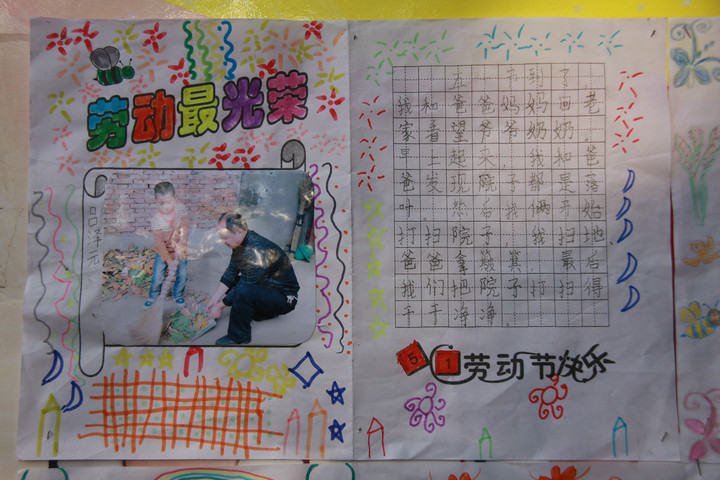 劳动最光荣
吕泽元
五一节到了,
我和爸爸妈妈回老
家看望爷爷奶奶。
早上起来,我和爸
爸发现院子都是落
叶,然后我俩开始
打扫院子,我扫地
爸爸拿簸箕,最后
我们把院子打扫得
干干净净。
5 1 劳动节快乐